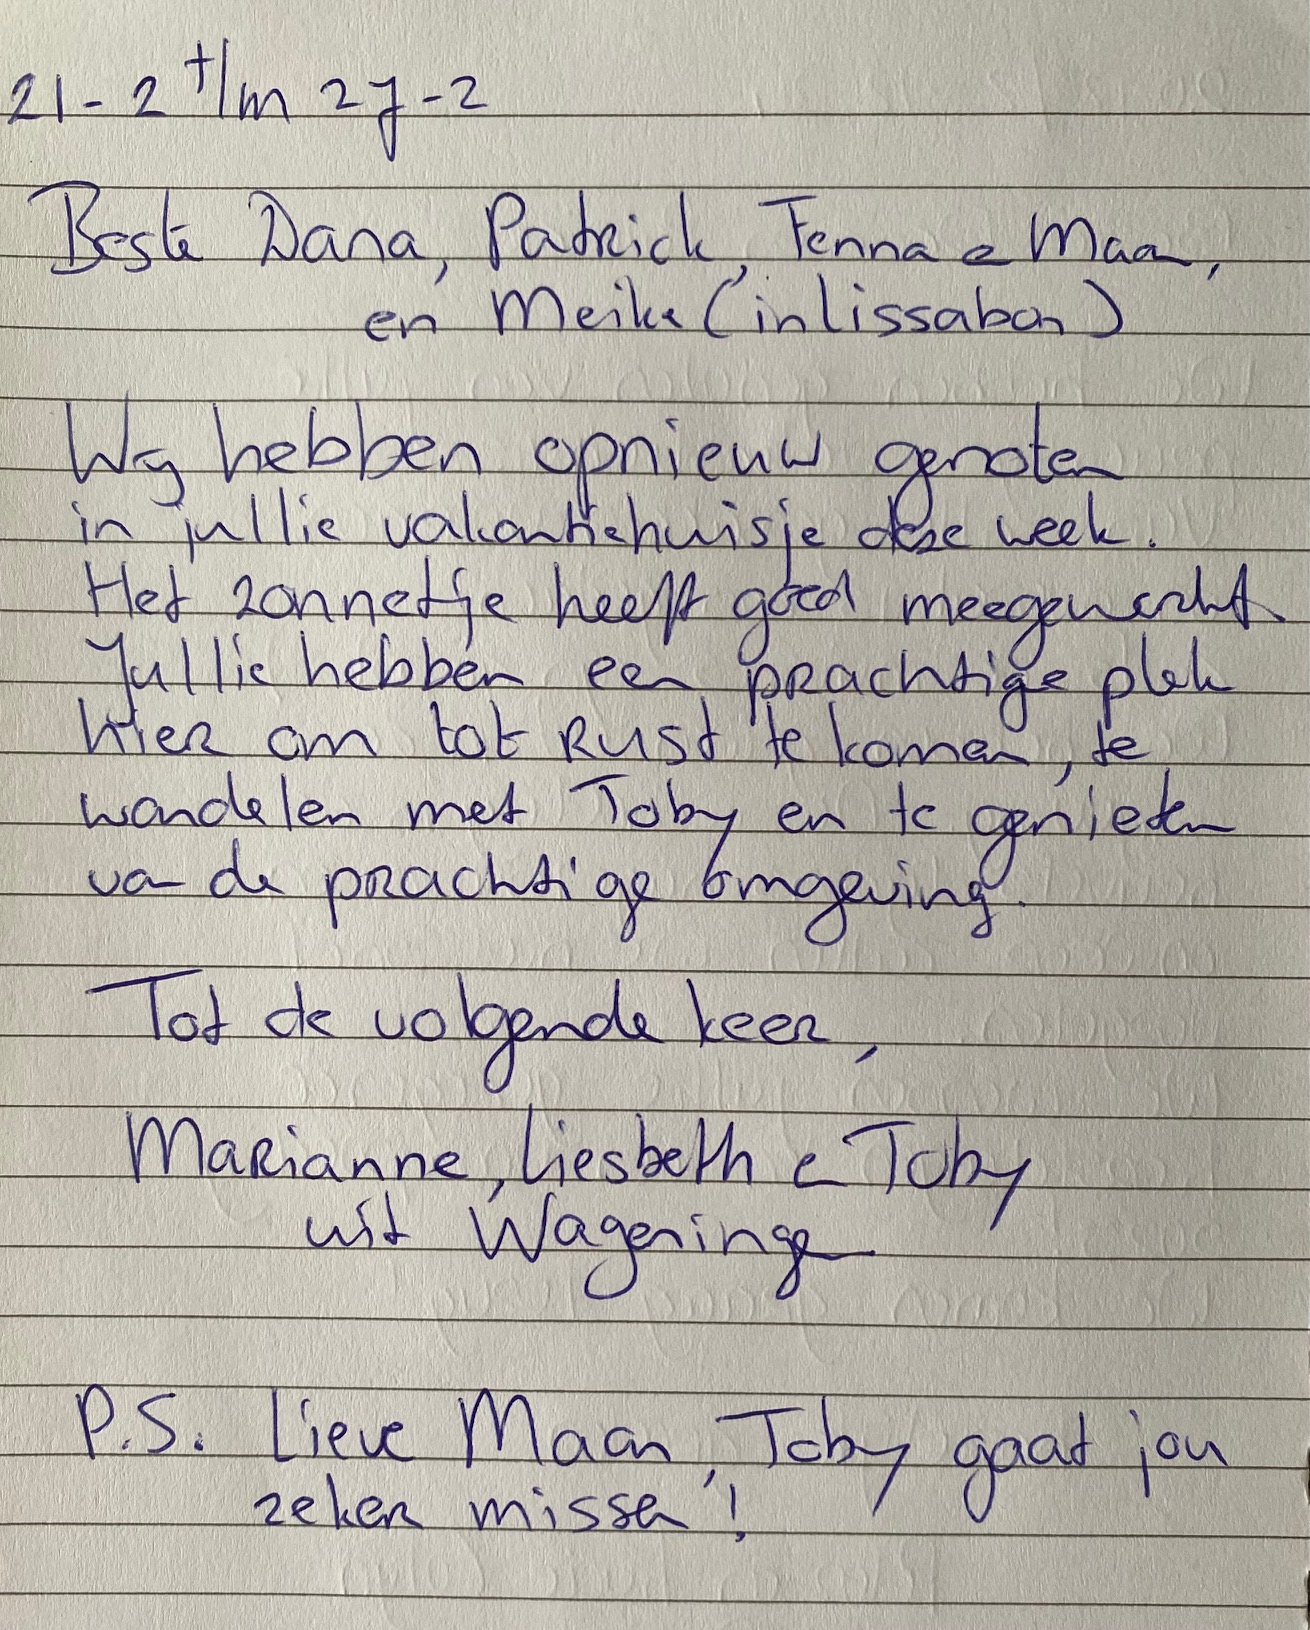 21-2 t/m 27-2
Beste Dana, Patrick, Fenna e Maan,
en Meike (in lissabon)
Wij hebben opnieuw genoten
in jullie vakantiehuisje deze week.
Het zonnetje heeft goed meegewerkt
Jullie hebben een prachtige plek
hier om tot Rust te komen, te
wandelen met Toby en te genieten
van de prachtige omgeving.
Tot de volgende keer,
Marianne, Liesbeth e Toby
uit Wageningen
P.S. Lieve Maan, Toby gaat jou
zeker missen!